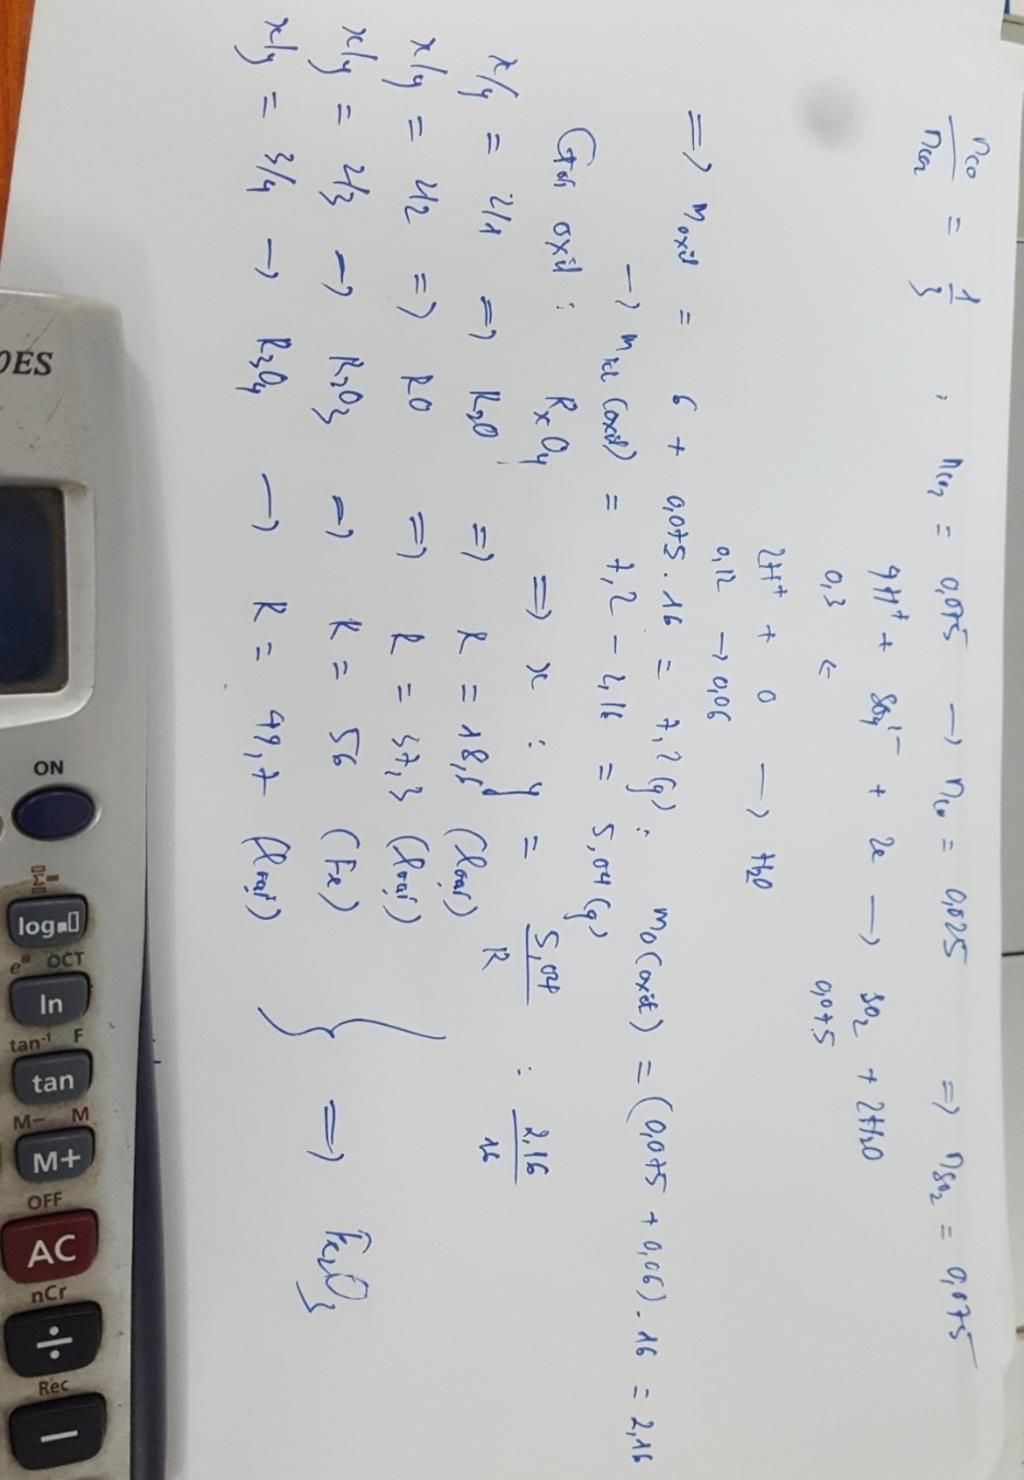 nCO/nCO2 = 1/3 ; nCO2 = 0,075 → nCO = 0,025 => nSO2 = 0,075
4H+ + SO4^2- + 2e → SO2 + 2H2O
0,3 ← 0,075
2H+ + O → H2O
0,12 → 0,06
=> m oxit = 6 + 0,075.16 = 7,2 (g) ; mO (oxit) = (0,075 + 0,06).16 = 2,16
→ m KL (oxit) = 7,2 - 2,16 = 5,04 (g)
Gọi oxit : RxOy => x : y = 5,04/R : 2,16/16
x/y = 2/1 => R2O => R = 18,6 (loại)
x/y = 2/2 => RO => R = 37,3 (loại)
x/y = 2/3 → R2O3 → R = 56 (Fe) => Fe2O3
x/y = 3/4 → R3O4 → R = 49,7 (loại)
OES
ON
Σ
log
e OCT
ln
tan-1 F
tan
M- M
M+
OFF
AC
nCr
÷
Rec
−